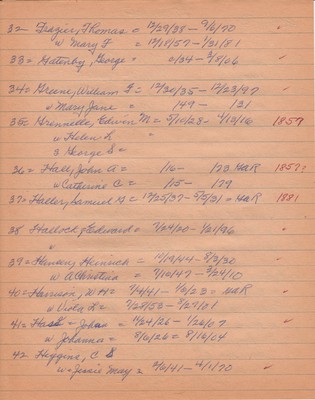 32 - Frazier, Thomas = 12/29/38 - 9/6/70 ✓
w Mary F = 12/18/57 - 1/31/81
33 = Gatenby, George = 0/34 - 3/8/06 ✓
34 = Greene, William G = 12/30/35 - 12/23/97 ✓
w Mary Jane = 149 - 131
35 = Grennelle, Edwin M = 5/10/23 - 4/13/16 1859
w Helen L "
3 George S =
36 = Hall, John A = 116 - 123 HAR 1857?
w Catherine C = 115 - 179
37 = Haller, Samuel G = 12/25/37 - 5/5/31 = HAR 1881
38 Hallock, Edward = 7/24/20 - 1/21/96 ✓
w
39 = Heinrich = 11/19/44 - 8/3/30 ✓
w = 7/10/47 - 3/24/10
40 = Harrison, W H = 9/4/41 - 1/6/23 = HAR ✓
w Viola L = 7/28/53 - 3/27/01
41 = Hast - John = 11/24/26 - 1/26/07 ✓
w Johanna = 8/6/26 = 8/16/04
42 - Higgins, C S ✓
w = Jessie May = 2/6/41 - 4/1/70 ✓